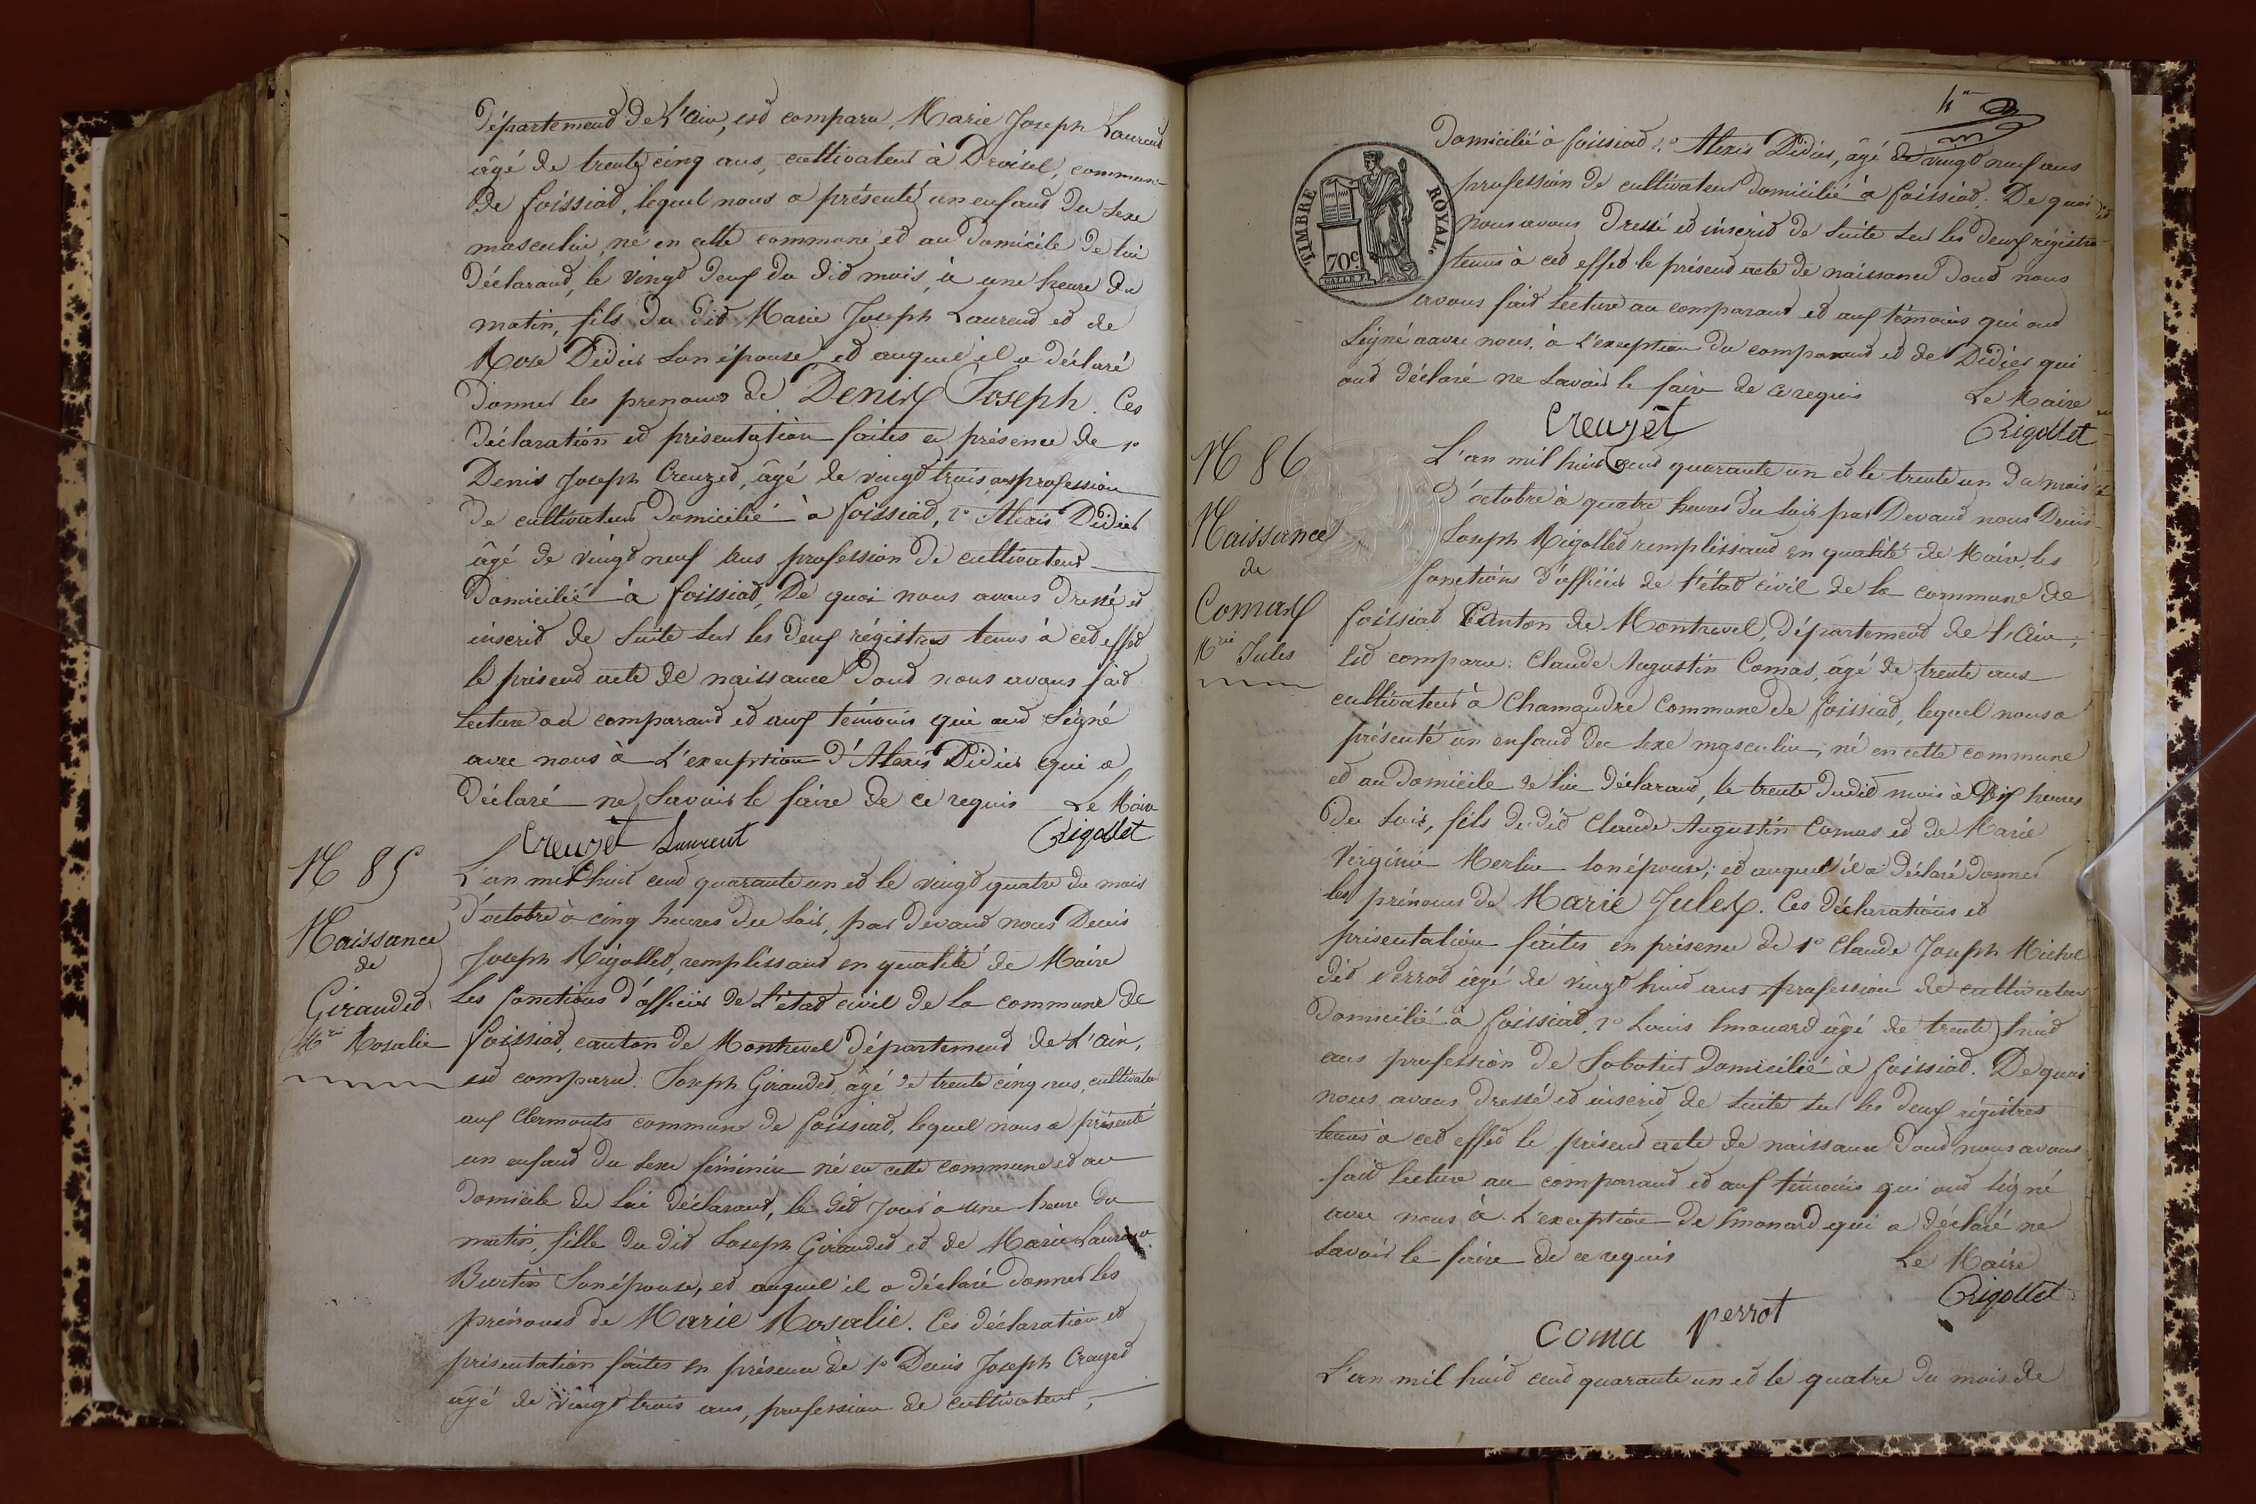 Département de L'ain, est comparu, Marie Joseph Laurent
âgé de trente cinq ans, cultivateur à Droisel, commune
de foissiat, lequel nous a présenté un enfant du sexe
masculin, né en cette commune et au domicile de lui
déclarant, le vingt deux du dit mois, à une heure du
matin, fils du dit Marie Joseph Laurent et de
Rose Didier son épouse et auquel il a déclaré
donner les prenoms de Denis Joseph. Ces
déclaration et présentation faites en présence de 1°
Denis Joseph Creuzet, âgé de vingt trois ans profession
de cultivateur domicilié à foissiat, 2° Alexis Didier
âgé de vingt neuf ans profession de cultivateur
domicilié à foissiat, De quoi nous avons dressé et
inscrit de suite sur les deux régistres tenus à cet effet
le présent acte de naissance dont nous avons fait
lecture au comparant et aux témoins qui ont signé
avec nous à L'exception d'Alexis Didier qui a
déclaré ne savoir le faire de ce requis Le Maire
Creuzet Laurent Rigollet
N 85
Naissance
de
Giraudet
Mrie Rosalie
L'an mil huit cent quarante un et le vingt quatre du mois
d'octobre à cinq heures du soir, par devant nous Denis
Joseph Rigollet, remplissant en qualité de Maire
les fonctions d'officier de L'état civil de la commune de
foissiat, canton de Montrevel département de L'ain,
est comparu: Joseph Giraudet, âgé de trente cinq ans, cultivateur
aux Clermonts commune de foissiat, lequel nous a présenté
un enfant du sexe féminin né en cette commune et au
domicile de lui déclarant, le dit jour à une heure du
matin, fille du dit Joseph Giraudet et de Marie
Burtin son épouse, et auquel il a déclaré donner les
prénoms de Marie Rosalie. Ces déclaration et
présentation faites en présence de 1° Denis Joseph Creuzet
âgé de vingt trois ans, profession de cultivateur,
domicilié à foissiat 2° Alexis Didier, âgé de vingt neuf ans
profession de cultivateur domicilié à foissiat. De quoi
nous avons dressé et inscrit de suite sur les deux régistres
tenus à cet effet le présent acte de naissance dont nous
avons fait lecture au comparant et aux témoins qui ont
signé avec nous, à L'exception du comparant et de Didier qui
ont déclaré ne savoir le faire de ce requis Le Maire
Creuzet Rigollet
TIMBRE ROYAL
70c
N 86
Naissance
de
Comas
Mrie Jules
L'an mil huit cent quarante un et le trente un du mois
d'octobre à quatre heures du soir par Devant nous Denis
Joseph Rigollet remplissant en qualité de Maire, les
fonctions d'officier de l'état civil de la commune de
foissiat Canton de Montrevel, département de l'Ain,
est comparu: Claude Augustin Comas, âgé de trente ans
cultivateur à Chamandre Commune de foissiat, lequel nous a
présenté un enfant du sexe masculin, né en cette commune
et au domicile de lui déclarant, le trente dudit mois à dix heures
du soir, fils dudit Claude Augustin Comas et de Marie
Virginie Merlin son épouse; et auquel il a déclaré donner
les prénoms de Marie Jules. Ces déclarations et
présentation faites en présence de 1° Claude Joseph Michel
dit Perrot âgé de vingt huit ans profession de cultivateur
domicilié à foissiat, 2° Louis Emonard âgé de trente huit
ans profession de Sabotier domicilié à foissiat. De quoi
nous avons dressé et inscrit de suite sur les deux régistres
tenus à cet effet le présent acte de naissance dont nous avons
fait lecture au comparant et aux témoins qui ont signé
avec nous à L'exception de Emonard qui a déclaré ne
savoir le faire de ce requis Le Maire
Rigollet
Coma perrot
L'an mil huit cent quarante un et le quatre du mois de